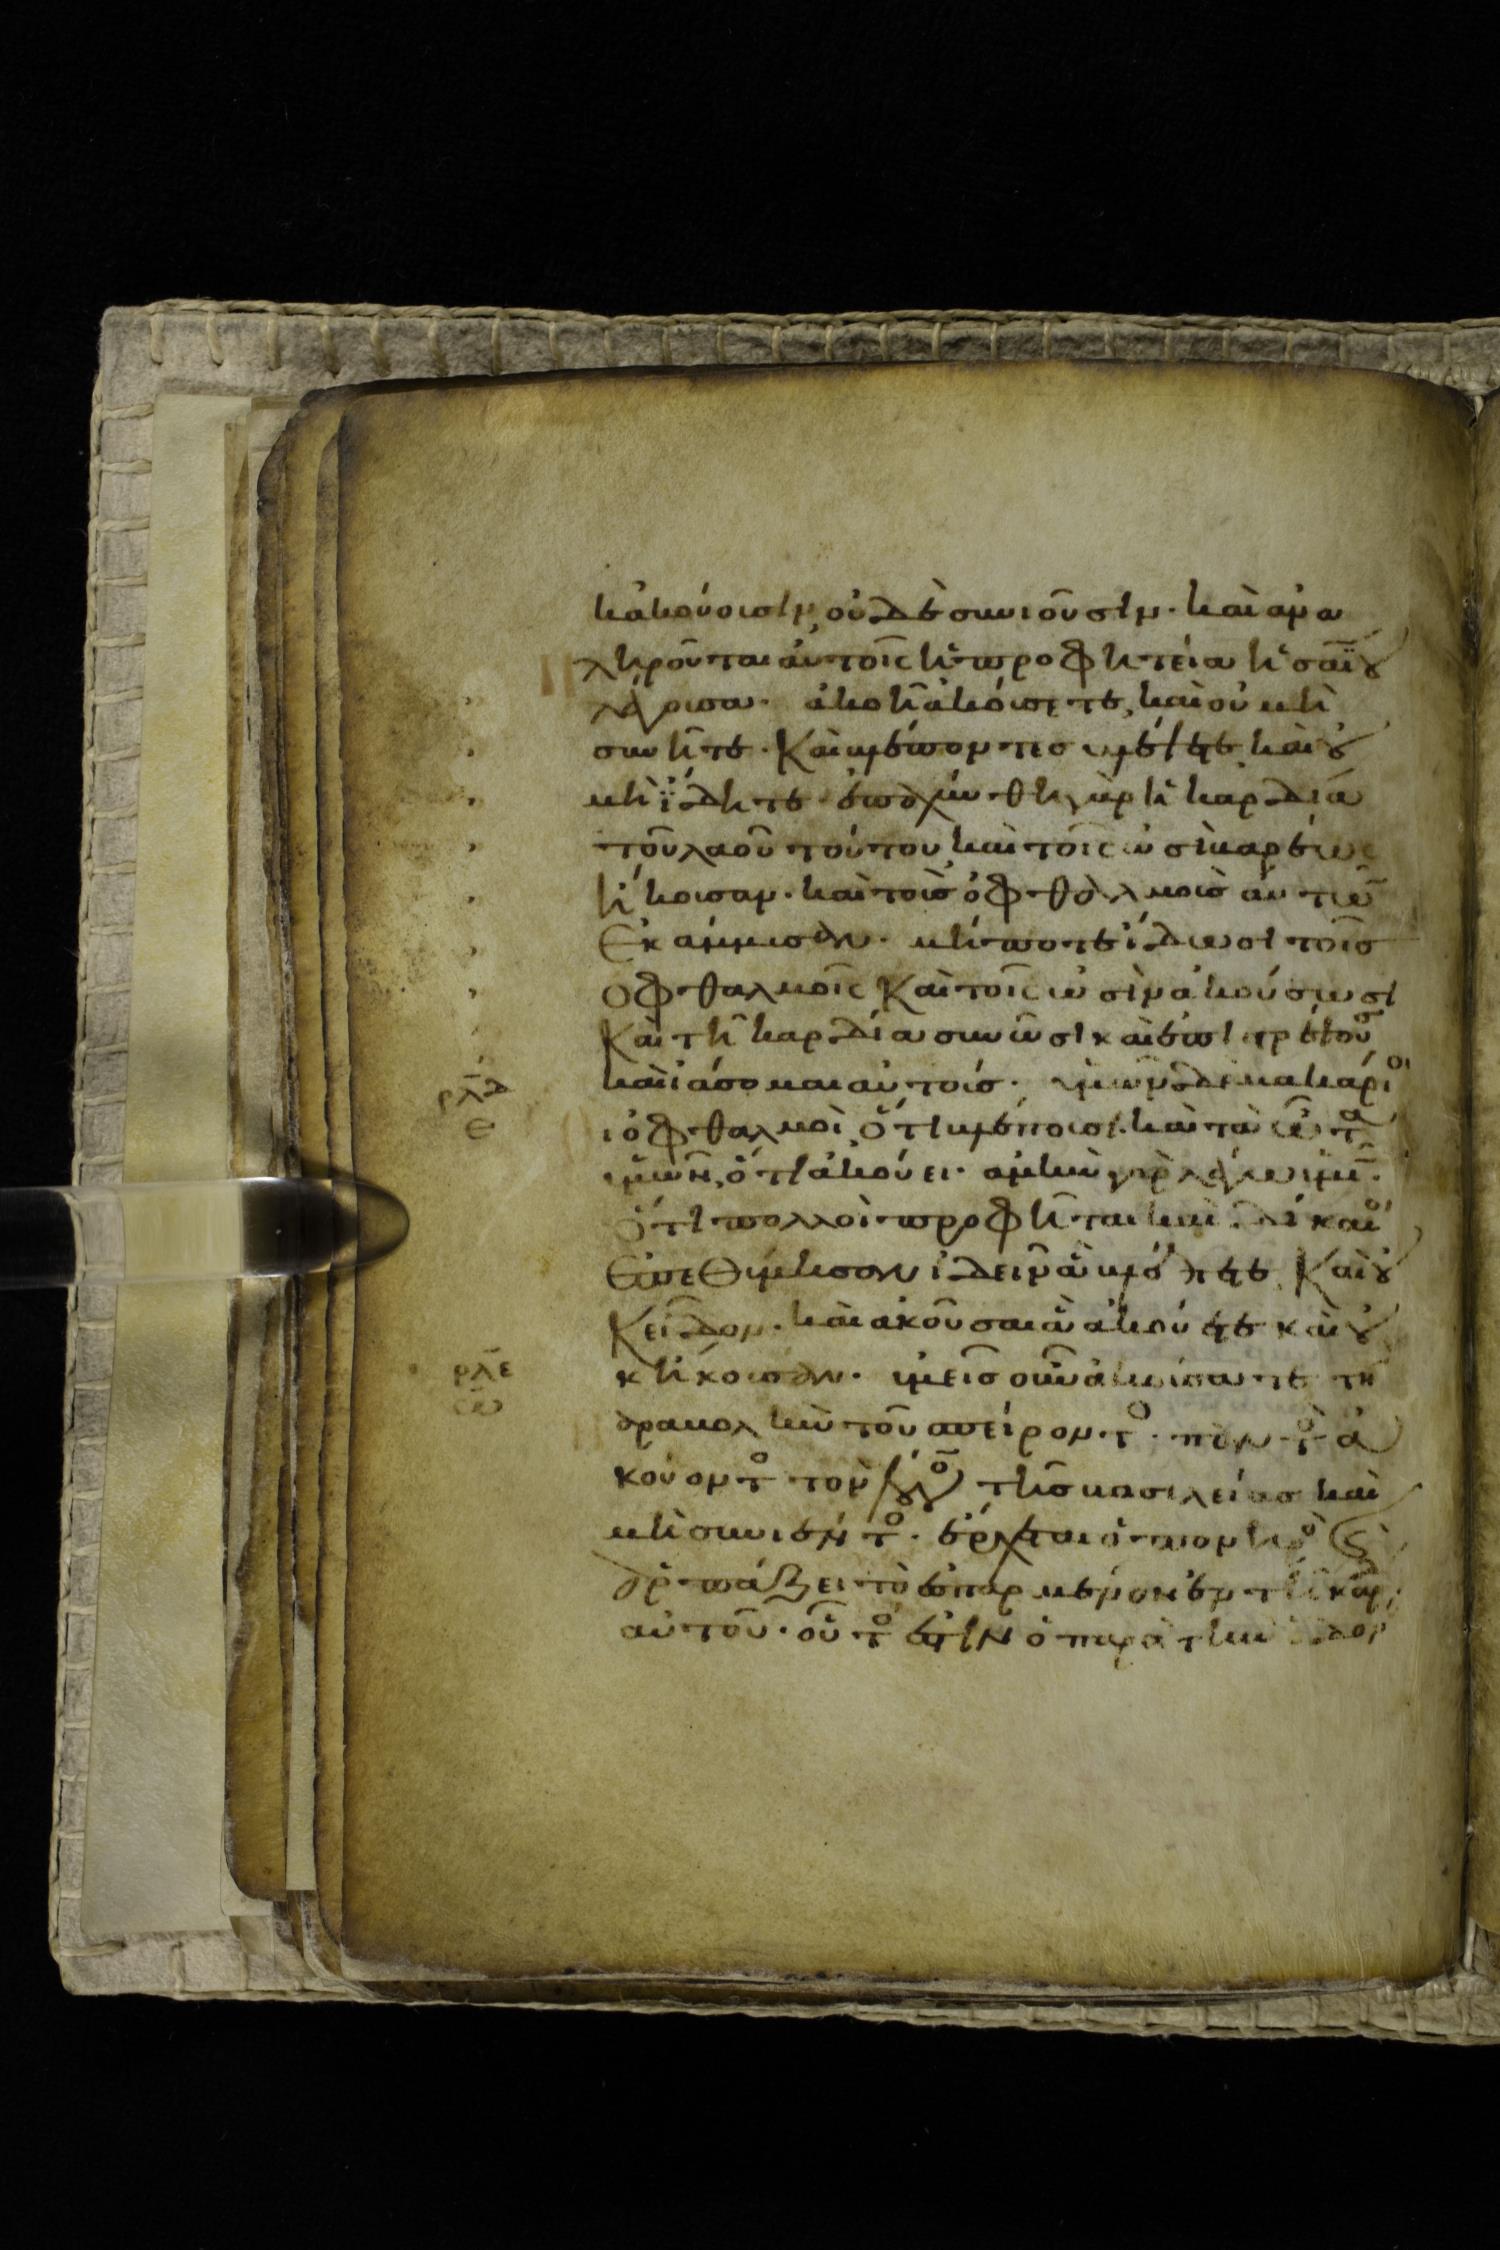 κἀκούουσιν, οὐδὲ συνιοῦσιν· καὶ ἀνα
πληροῦται αὐτοῖς ἡ προφητεία ἡσαΐου
λέγουσα· ἀκοῇ ἀκούσετε, καὶ οὐ μὴ
συνῆτε· καὶ βλέποντες βλέψετε καὶ οὐ
μὴ ἴδητε· ἐπαχύνθη γὰρ ἡ καρδία
τοῦ λαοῦ τούτου, καὶ τοῖς ὠσὶ βαρέως
ἤκουσαν· καὶ τοὺς ὀφθαλμοὺς αὐτῶν
ἐκάμμυσαν· μήποτε ἴδωσι τοῖς
ὀφθαλμοῖς καὶ τοῖς ὠσὶν ἀκούσωσι
καὶ τῇ καρδία συνῶσι καὶ ἐπιστρέψουσ
καὶ ἰάσομαι αὐτούς· ὑμῶν δὲ μακάριοι
ρλδ
ε
οἱ ὀφθαλμοὶ ὅτι βλέπουσι· καὶ τὰ ὦτα
ὑμῶν, ὅτι ἀκούει· ἀμὴν γὰρ λέγω ὑμῖν·
ὅτι πολλοὶ προφῆται καὶ δίκαιοι
ἐπεθύμησαν ἰδεῖν ἃ βλέπετε, καὶ οὐ
κ εἶδον· καὶ ἀκοῦσαι ἃ ἀκούετε καὶ οὐ
κ ἤκουσαν· ὑμεῖς οὖν ἀκούσατε τὴν
ρλε
παραβολὴν τοῦ σπείροντος· παντὸς ἀ
κούοντος τὸν λόγον τῆς βασιλείας καὶ
μὴ συνιέντος· ἔρχεται ὁ πονηρὸς καὶ
ἁρπάζει τὸ ἐσπαρμένον ἐν τῇ καρδ
αὐτοῦ· οὗτός ἐστιν ὁ παρὰ τὴν ὁδὸν